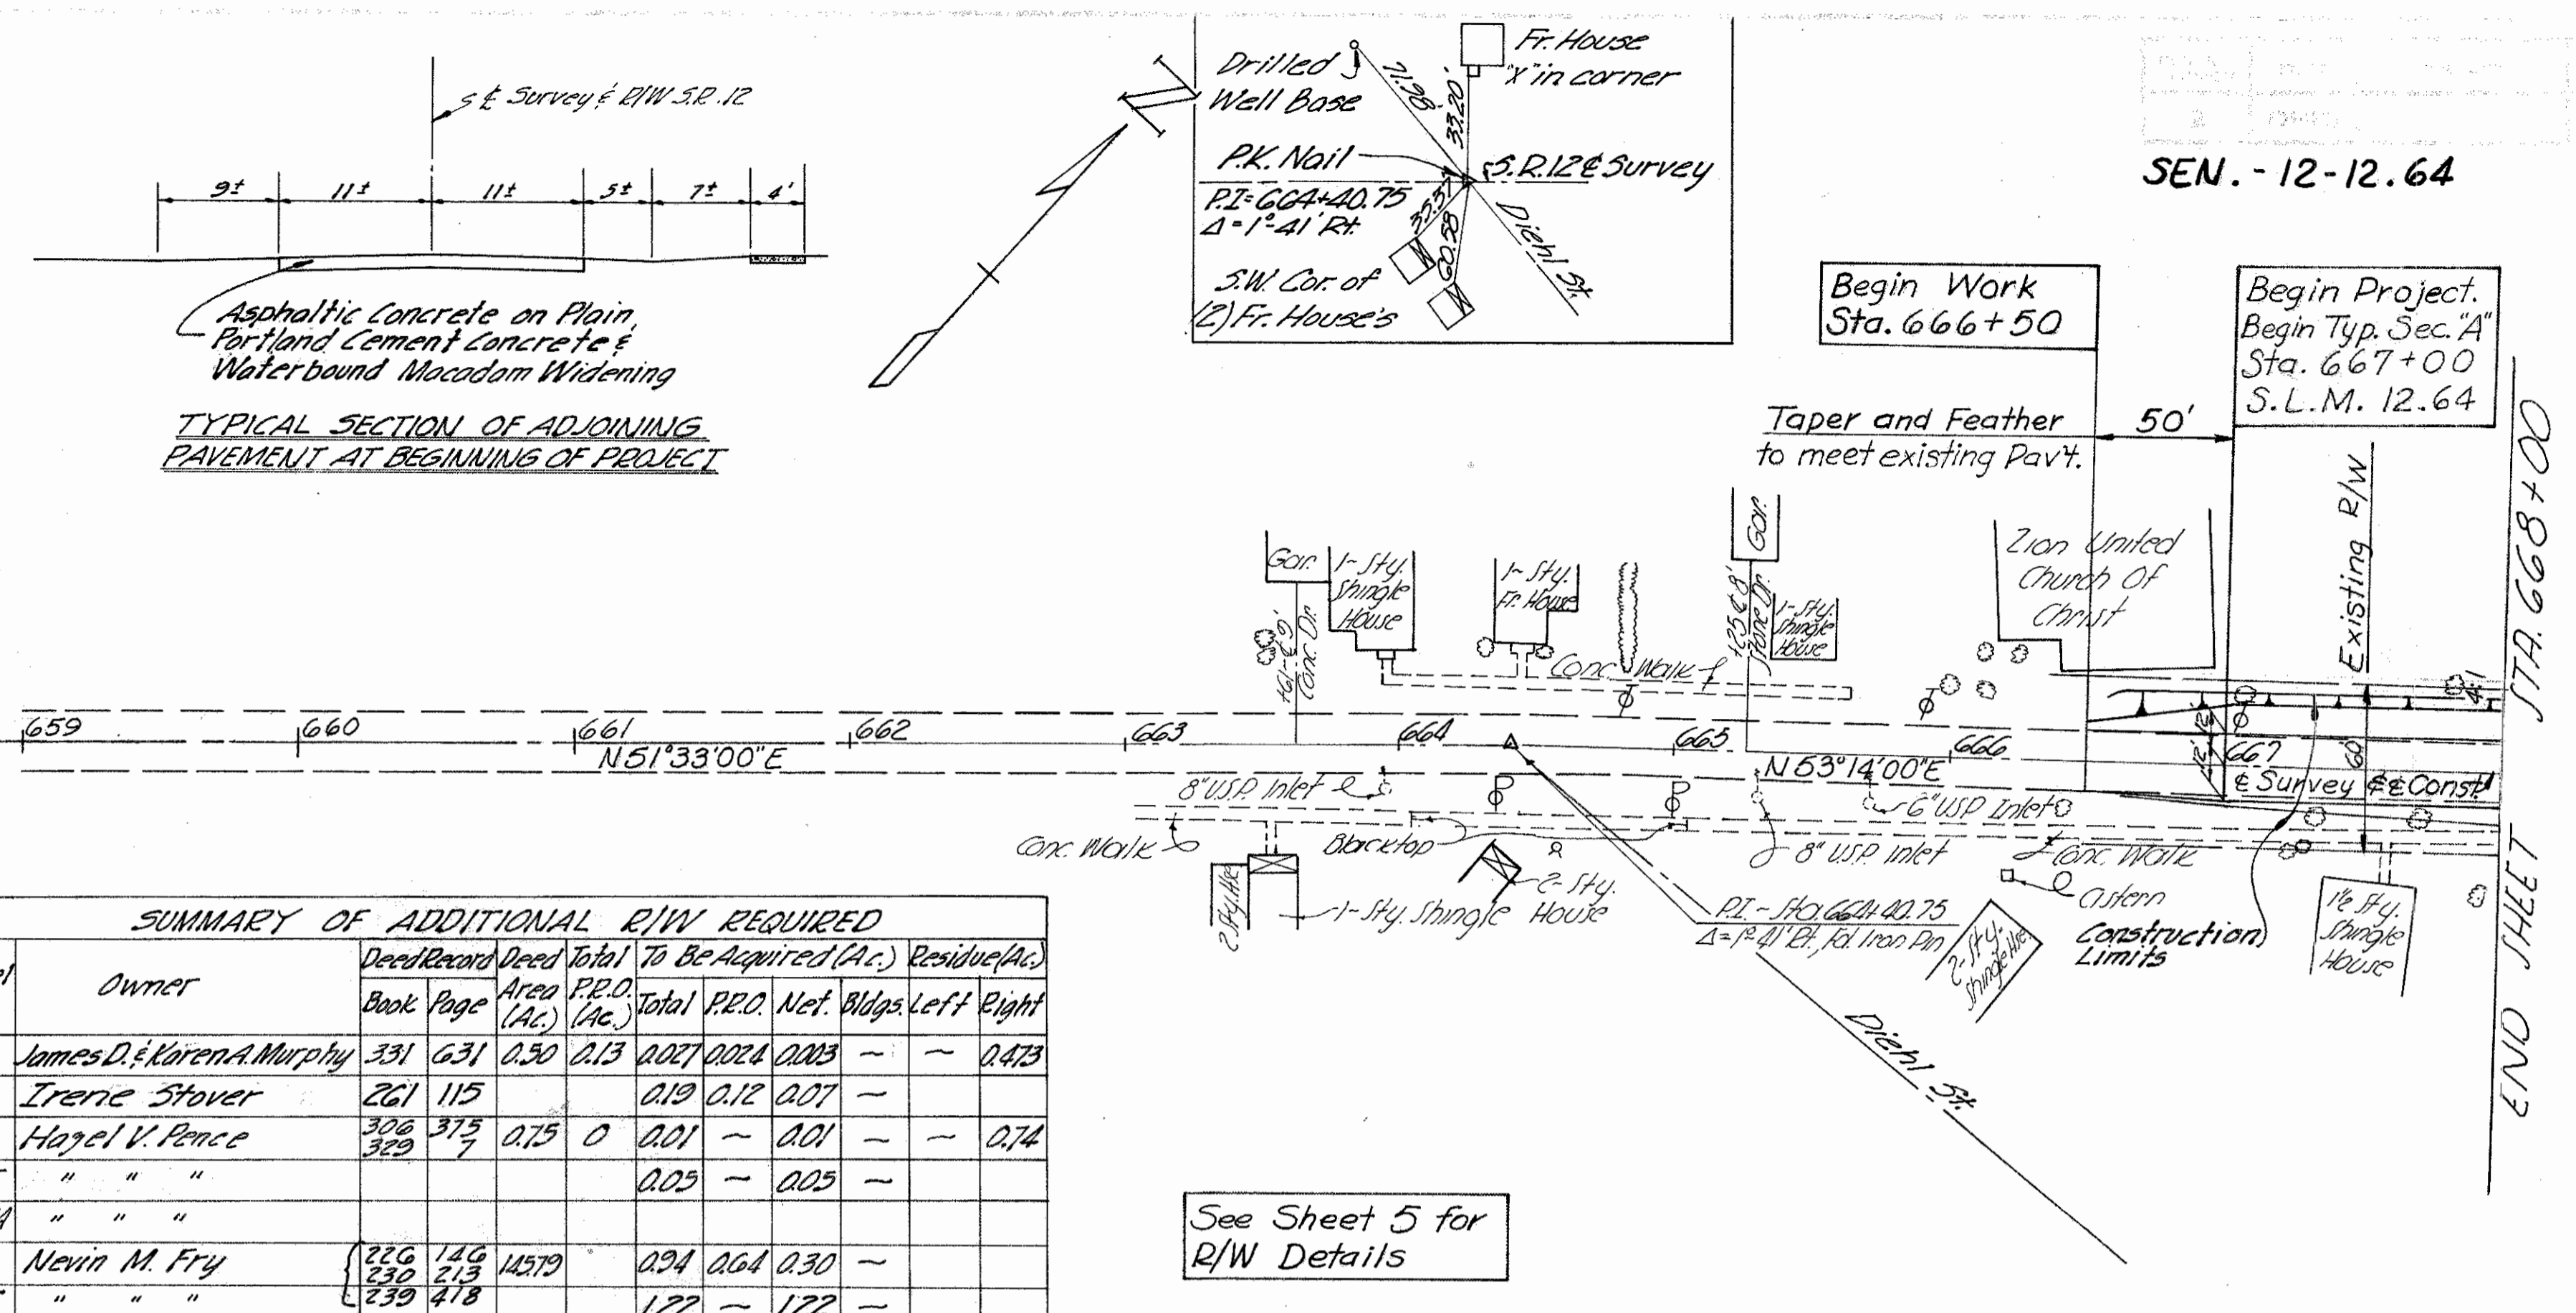 ℄ Survey & R/W S.R. 12
9± 11± 11± 5± 7± 4'
Asphaltic Concrete on Plain,
Portland Cement Concrete &
Waterbound Macadam Widening
TYPICAL SECTION OF ADJOINING
PAVEMENT AT BEGINNING OF PROJECT
N
Drilled
Well Base
71.98'
33.20'
Fr. House
"X" in corner
P.K. Nail
S.R.12 ℄ Survey
P.I=664+40.75
Δ=1°-41' Rt.
60.58
Diehl St.
S.W. Cor. of
(2) Fr. House's
SEN. - 12-12.64
Begin Work
Sta. 666+50
Begin Project.
Begin Typ. Sec. "A"
Sta. 667+00
S.L.M. 12.64
Taper and Feather
to meet existing Pav't.
50'
Existing R/W
60'
STA. 668+00
END SHEET
Gar.
1-Sty.
Shingle
House
+61-℄9'
Conc. Dr.
1-Sty.
Fr. House
Gar.
+25 ℄ 8'
Stone Dr.
1-Sty.
Shingle
House
Zion United
Church Of
Christ
Conc. Walk
4:1
12' 12'
659 660 661 662 663 664 665 666 667
N51°33'00"E
N53°14'00"E
℄ Survey & ℄ Const.
8" U.S.P. Inlet
6" USP Inlet
8" U.S.P. Inlet
Conc. Walk
Blacktop
Conc. Walk
Cistern
2 Sty. Hse
1-Sty. Shingle
2-Sty.
House
P.I. - Sta. 664+40.75
Δ=1°-41' Rt., Fd. Iron Pin
2-Sty.
Shingle Hse
Construction
Limits
1½ Sty.
Shingle
House
Diehl St.
See Sheet 5 for
R/W Details
SUMMARY OF ADDITIONAL R/W REQUIRED
Owner
Deed Record Deed Total To Be Acquired (Ac.) Residue (Ac.)
Book Page Area (Ac.) P.R.O. (Ac.) Total P.R.O. Net. Bldgs. Left Right
James D. & Karen A. Murphy 331 631 0.50 0.13 0.027 0.024 0.003 ~ ~ 0.473
Irene Stover 261 115 0.19 0.12 0.07 ~
Hazel V. Pence 306 375 0.75 0 0.01 ~ 0.01 ~ ~ 0.74
329 7
" " " 0.05 ~ 0.05 ~
" " "
Nevin M. Fry 226 146 145.79 0.94 0.64 0.30 ~
230 213
" " " 239 418 1.22 ~ 1.22 ~